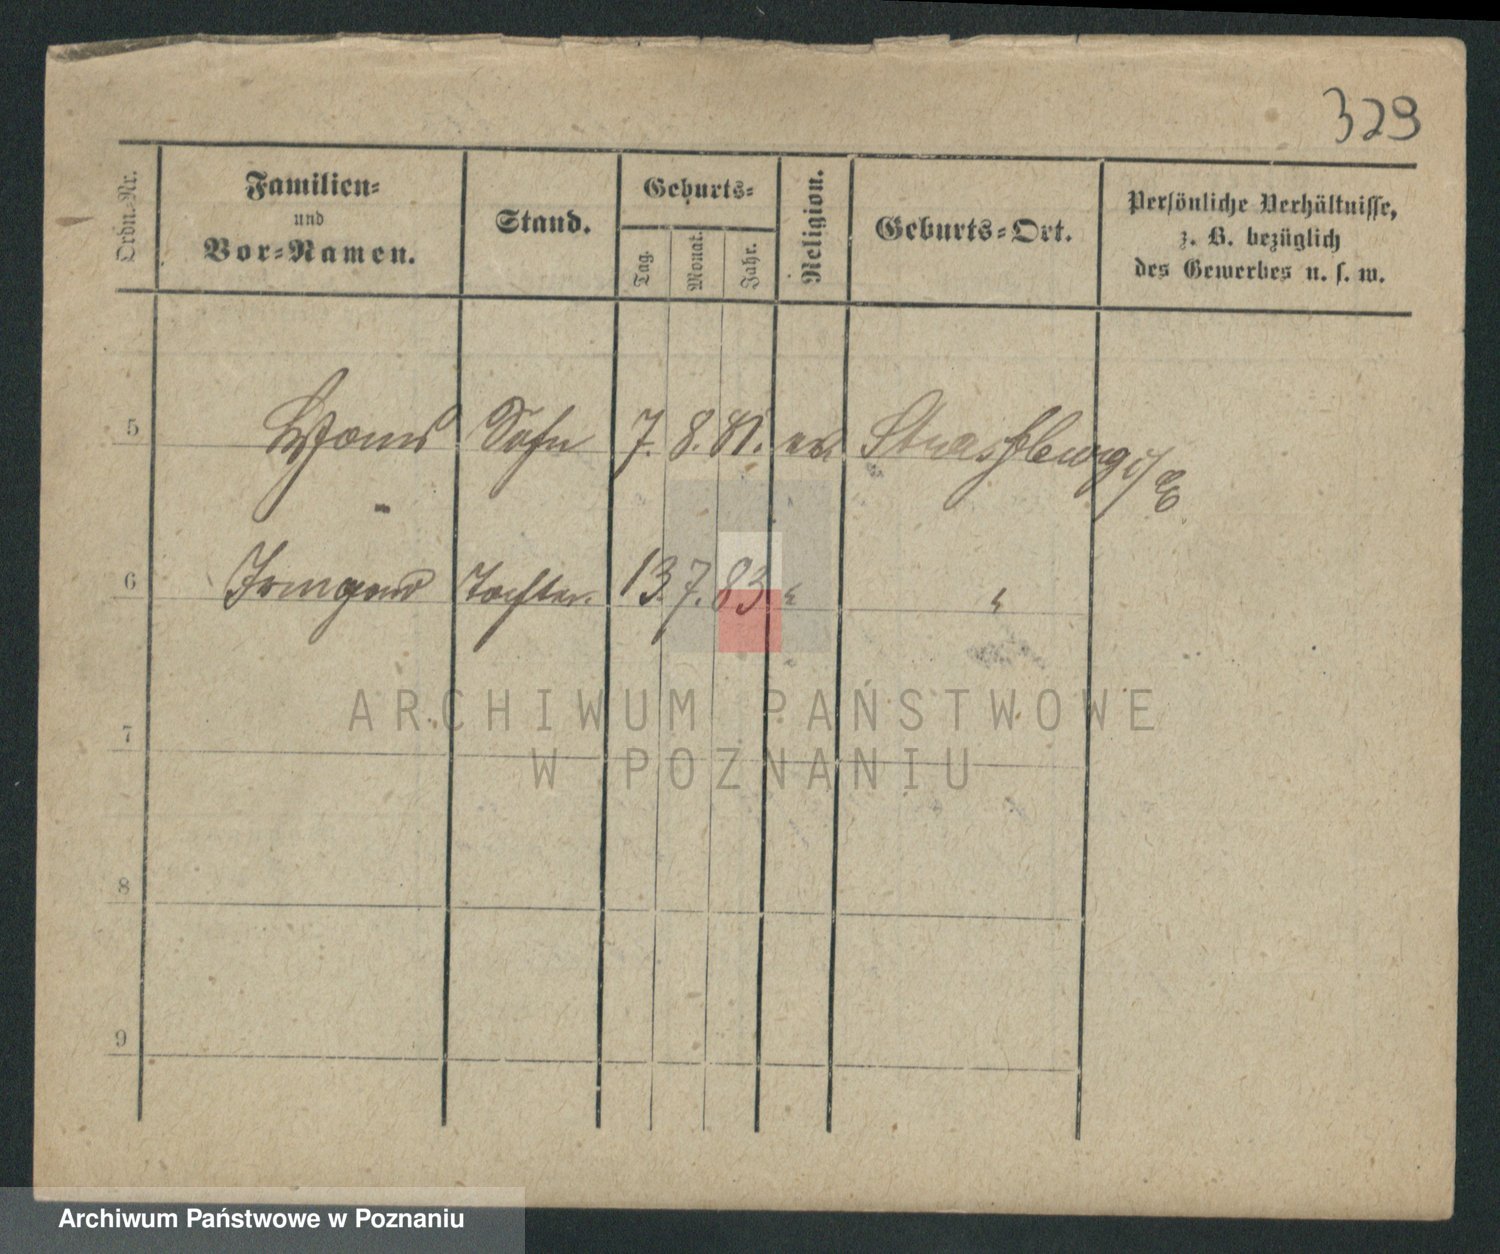 329
Ordn.-Nr.
Familien-
und
Vor-Namen.
Stand.
Geburts-
Tag.
Monat.
Jahr.
Religion.
Geburts-Ort.
Persönliche Verhältnisse,
z. B. bezüglich
des Gewerbes u. s. w.
5 Sohn 7. 8. 81. ev. Strassburg i/E
6 Irmgard Tochter. 13. 7. 83 " "
7
8
9
ARCHIWUM PAŃSTWOWE
W POZNANIU
Archiwum Państwowe w Poznaniu